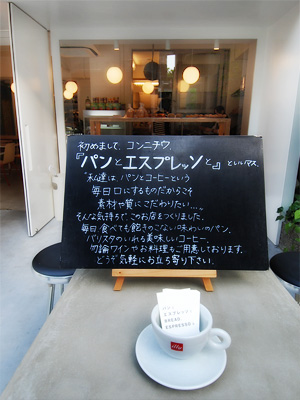 初めまして、コンニチワ。
『パンとエスプレッソと』といいマス。
私達は、パンとコーヒーという
毎日口にするものだからこそ
素材や質にこだわりたい…。
そんな気持ちでこのお店をつくりました。
毎日食べても飽きのこない味わいのパン。
バリスタのいれる美味しいコーヒー。
勿論ワインやお料理もご用意しております。
どうぞ気軽にお立ち寄り下さい。
BREAD,
ESPRESSO &
illy